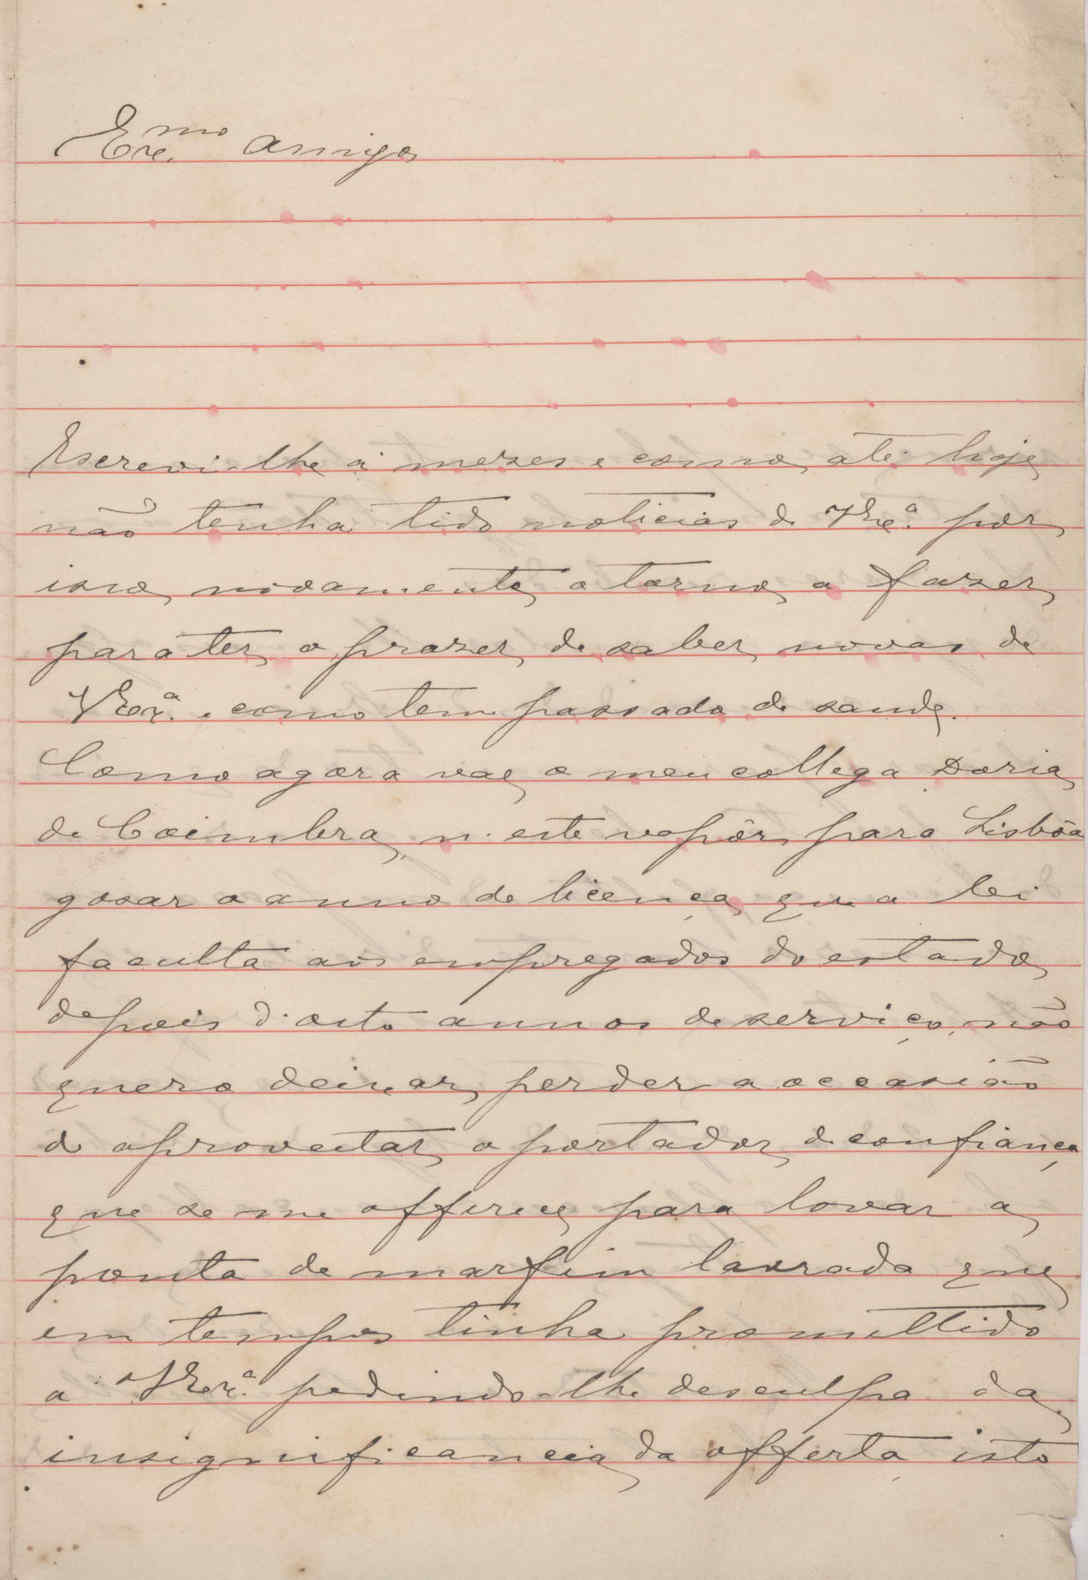 Exc.mo amigo
Escrevi-lhe á mezes e como até hoje
não tenha tido noticias de V.Exc.ª por
isso novamente o torno a fazer
para ter o prazer de saber novas de
V.Exc.ª e como tem passado de saude.
Como agora vae o meu collega Doria
de Coimbra, n'este vapôr para Lisbôa
gosar o anno de licença que a lei
faculta aos empregados do estado
depois d'oito annos de serviço, não
quero deixar perder a occasião
de aproveitar o portador de confiança
que se me offerece para levar a
ponta de marfim lavrada que
em tempos tinha promettido
a V.Exc.ª pedindo-lhe desculpa da
insignificancia da offerta isto